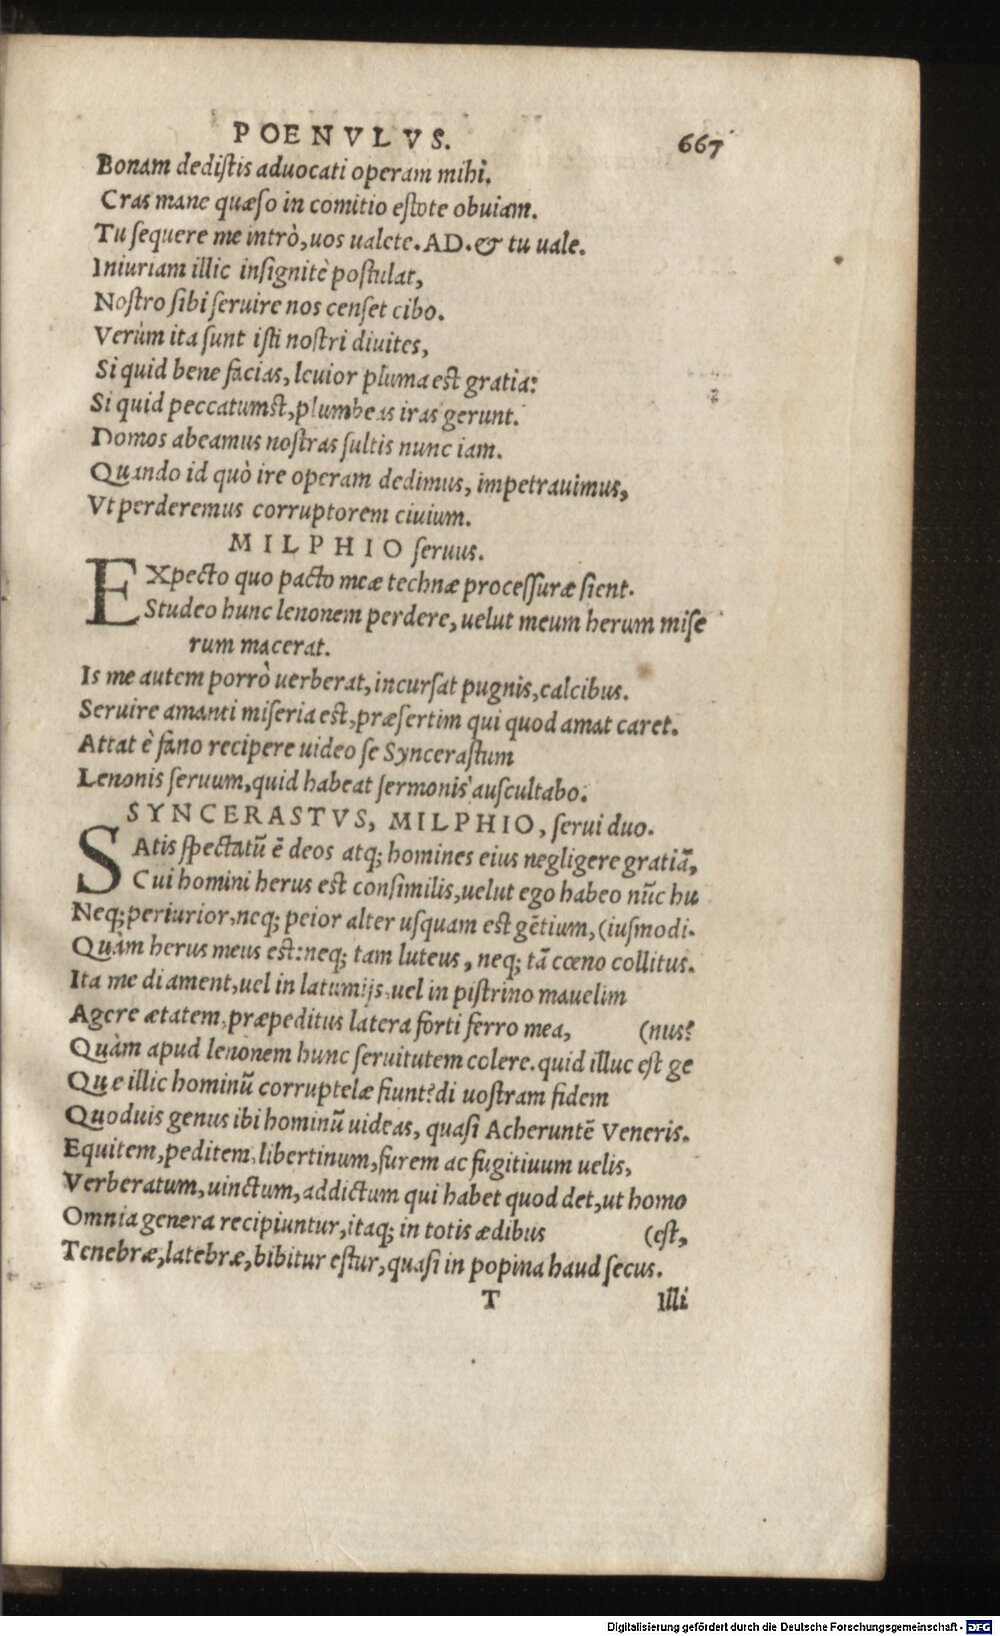 POENVLVS. 667
Bonam dediſtis aduocati operam mihi.
Cras mane quæſo in comitio eſtote obuiam.
Tu ſequere me intrò, uos ualete. AD. & tu uale.
Iniuriam illic inſignitè poſtulat,
Noſtro ſibi ſeruire nos cenſet cibo.
Verùm ita ſunt iſti noſtri diuites,
Si quid bene facias, leuior pluma est gratia:
Si quid peccatumst, plumbeas iras gerunt.
Domos abeamus noſtras ſultis nunc iam.
Quando id quò ire operam dedimus, impetrauimus,
Vt perderemus corruptorem ciuium.
MILPHIO ſeruus.
EXpecto quo pacto meæ technæ proceſſuræ ſient.
Studeo hunc lenonem perdere, uelut meum herum miſe
rum macerat.
Is me autem porrò uerberat, incurſat pugnis, calcibus.
Seruire amanti miſeria est, præſertim qui quod amat caret.
Attat è fano recipere uideo ſe Synceraſtum
Lenonis ſeruum, quid habeat ſermonis auſcultabo.
SYNCERASTVS, MILPHIO, ſerui duo.
SAtis ſpectatū ē deos atq; homines eius negligere gratiā,
Cui homini herus est conſimilis, uelut ego habeo nūc hu
Neq; periurior, neq; peior alter uſquam est gētium, (iuſmodi.
Quàm herus meus est: neq; tam luteus, neq; tā cœno collitus.
Ita me di ament, uel in latumijs, uel in piſtrino mauelim
Agere ætatem, præpeditus latera forti ferro mea, (nus?
Quàm apud lenonem hunc ſeruitutem colere. quid illuc eſt ge
Que illic hominū corruptelæ fiunt? di uoſtram fidem
Quoduis genus ibi hominū uideas, quaſi Acheruntē Veneris.
Equitem, peditem, libertinum, furem ac fugitiuum uelis,
Verberatum, uinctum, addictum qui habet quod det, ut homo
Omnia genera recipiuntur, itaq; in totis ædibus (eſt,
Tenebræ, latebræ, bibitur eſtur, quaſi in popina haud ſecus.
T Illi
Digitalisierung gefördert durch die Deutsche Forschungsgemeinschaft - DFG